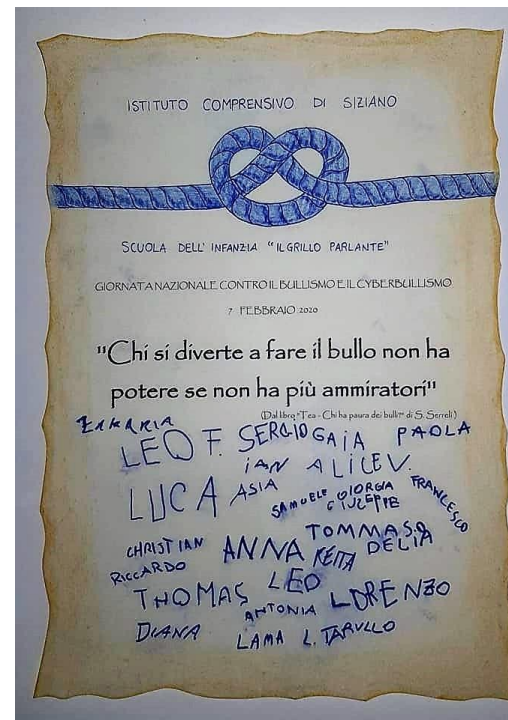 ISTITUTO COMPRENSIVO DI SIZIANO
SCUOLA DELL' INFANZIA "IL GRILLO PARLANTE"
GIORNATA NAZIONALE CONTRO IL BULLISMO E IL CYBERBULLISMO
7 FEBBRAIO 2020
"Chi si diverte a fare il bullo non ha
potere se non ha più ammiratori"
(Dal libro "Tea - Chi ha paura dei bulli?" di S. Serreli)
LEO F. SERGIO GAIA PAOLA
IAN ALICE V.
LUCA ASIA SAMUELE GIORGIA FRANCESCO
GIUSEPPE
CHRISTIAN ANNA TOMMASO
KEITA DELIA
RICCARDO
THOMAS LEO
ANTONIA LORENZO
DIANA LAMA L. TARULLO